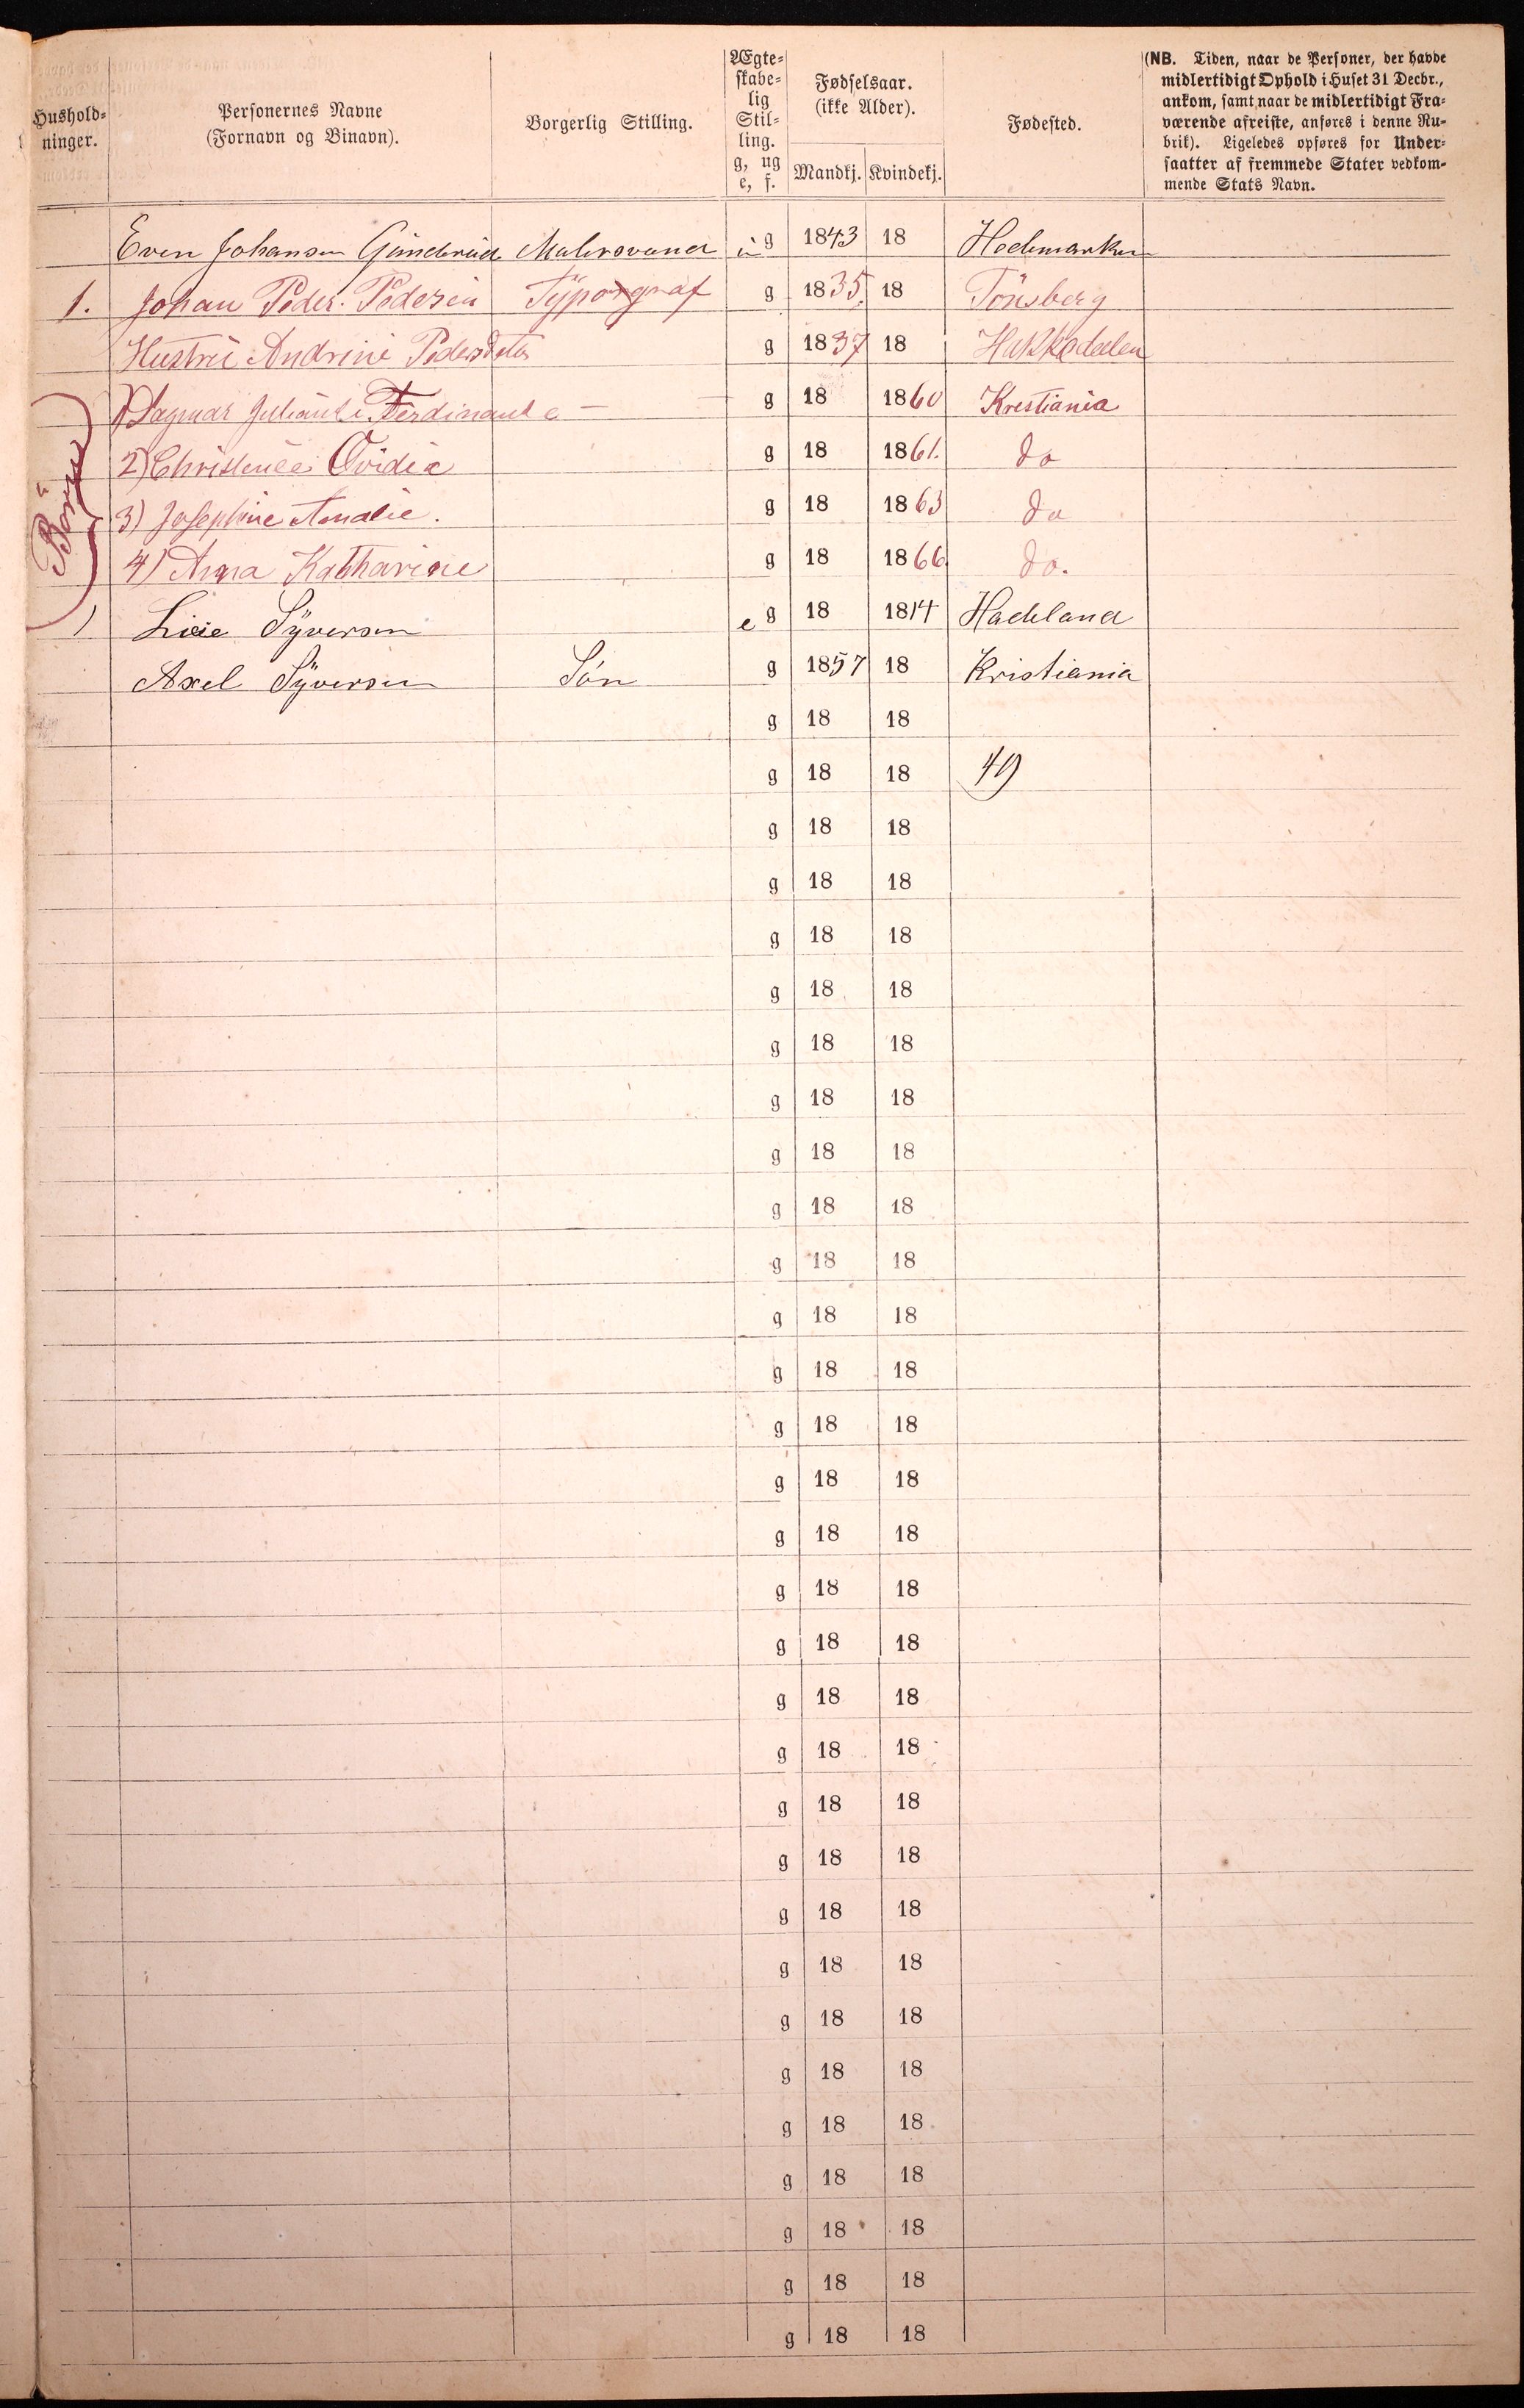 Hushold-
ninger.
Personernes Navne
(Fornavn og Binavn).
Borgerlig Stilling.
Ægte-
skabe-
lig
Stil-
ling.
g, ug
e, f.
Fødselsaar.
(ikke Alder).
Mandkj. Kvindekj.
Fødested.
(NB. Tiden, naar de Personer, der havde
midlertidigt Ophold i Huset 31 Decbr.,
ankom, samt naar de midlertidigt Fra-
værende afreiste, anføres i denne Ru-
brik). Ligeledes opføres for Under-
saatter af fremmede Stater vedkom-
mende Stats Navn.
Even Johansen Günderüd Malersvend ug 1843 18 Hedemarken
1. Johan Peder Pedersen Typograf g 1835 18 Tönsberg
Hustrü Andrine Pedersdatter g 1837 18 Hakkedalen
Børn
1) Dagmar Juliane Ferdinante — g 18 1860 Krestiania
2) Christence Ovidia g 18 1861. do
3) Josephine Amalie. g 18 1863 do
4) Anna Katharine g 18 1866 do.
1 Lisie Syversen e g 18 1814 Hadeland
Axel Syversen Sön g 1857 18 Kristiania
g 18 18
g 18 18 49
g 18 18
g 18 18
g 18 18
g 18 18
g 18 18
g 18 18
g 18 18
g 18 18
g 18 18
g 18 18
g 18 18
g 18 18
g 18 18
g 18 18
g 18 18
g 18 18
g 18 18
g 18 18
g 18 18
g 18 18
g 18 18
g 18 18
g 18 18
g 18 18
g 18 18
g 18 18
g 18 18
g 18 18
g 18 18